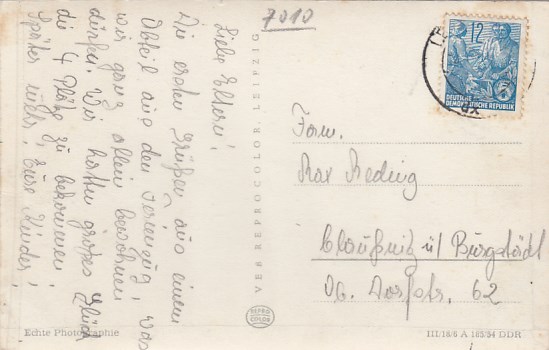 7010
Liebe Eltern!
Die ersten Grüße aus einem
Abteil aus dem Ferienzug, das
wir ganz allein bewohnen
dürfen. Wir hatten großes Glück
die 4 Plätze zu bekommen!
Später mehr! Eure Kinder!
VEB REPROCOLOR, LEIPZIG
12
5
DEUTSCHE
DEMOKRATISCHE REPUBLIK
Fam.
Max Reding
Claußnitz ü/ Burgstädt
Ob. Dorfstr. 62
REPRO
COLOR
Echte Photographie
III/18/6 A 183/54 DDR